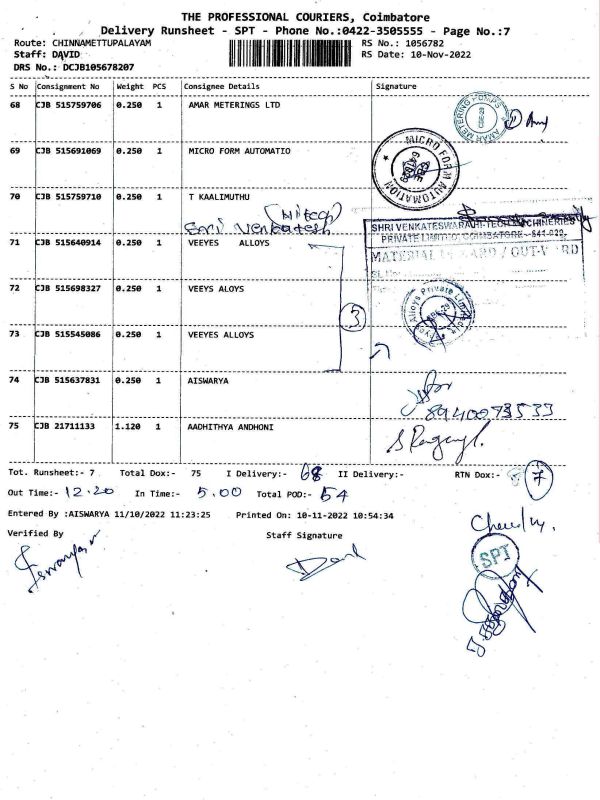 THE PROFESSIONAL COURIERS, Coimbatore
Delivery Runsheet - SPT - Phone No.:0422-3505555 - Page No.:7
Route: CHINNAMETTUPALAYAM
RS No.: 1056782
Staff: DAVID
RS Date: 10-Nov-2022
DRS No.: DCJB105678207
S No Consignment No Weight PCS Consignee Details Signature
68 CJB 515759706 0.250 1 AMAR METERINGS LTD
AMAR METERING PUMPS
69 CJB 515691069 0.250 1 MICRO FORM AUTOMATIO
MICRO FORM AUTOMATION
70 CJB 515759710 0.250 1 T KAALIMUTHU
(Hitech)
Sri Venkatesh
SHRI VENKATESWARA HI-TECH MACHINERIES
PRIVATE LIMITED, COIMBATORE - 641 029.
71 CJB 515640914 0.250 1 VEEYES ALLOYS
72 CJB 515698327 0.250 1 VEEYS ALOYS
Alloys Private Limited
3
73 CJB 515545086 0.250 1 VEEYES ALLOYS
74 CJB 515637831 0.250 1 AISWARYA
8940073533
75 CJB 21711133 1.120 1 AADHITHYA ANDHONI
Tot. Runsheet:- 7 Total Dox:- 75 I Delivery:- 68 II Delivery:- RTN Dox:- 7
Out Time:- 12.20 In Time:- 5.00 Total POD:- 54
Entered By :AISWARYA 11/10/2022 11:23:25 Printed On: 10-11-2022 10:54:34
Verified By Staff Signature
SPT